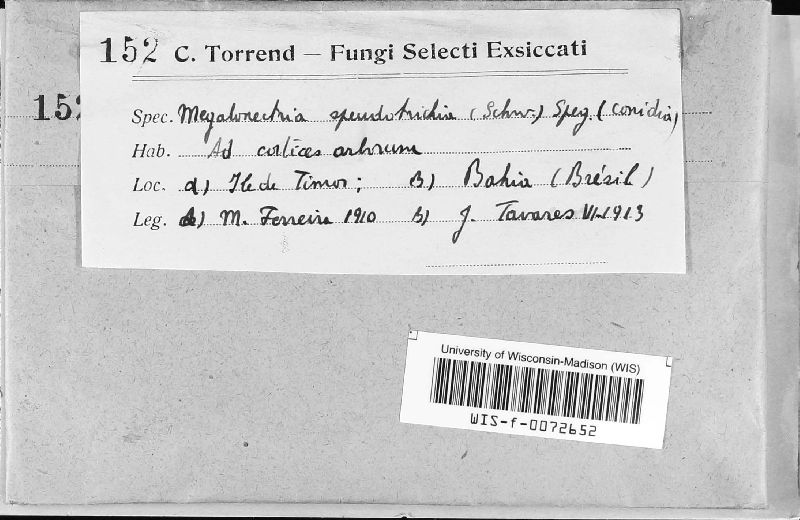 152 C. Torrend – Fungi Selecti Exsiccati
152
Spec. Megalonectria speudotrichia (Schw.) Speg. (Conidia)
Hab. Ad cortices arborum
Loc. a) Ile de Timor; B) Bahia (Brésil)
Leg. a) M. Ferreira 1910 B) J. Tavares VI-1913
University of Wisconsin-Madison (WIS)
WIS-f-0072652